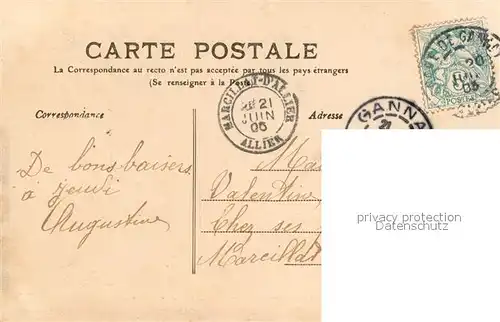 CARTE POSTALE
La Correspondance au recto n'est pas acceptée par tous les pays étrangers
(Se renseigner à la Poste)
Correspondance
Adresse
MARCILLAT-D'ALLIER
21
JUIN
05
ALLIER
GANNA
De bons baisers
à jeudi
Augustine
Valentine
Chez ses
Marcillat
privacy protection
www.ansichtskarten-center.de